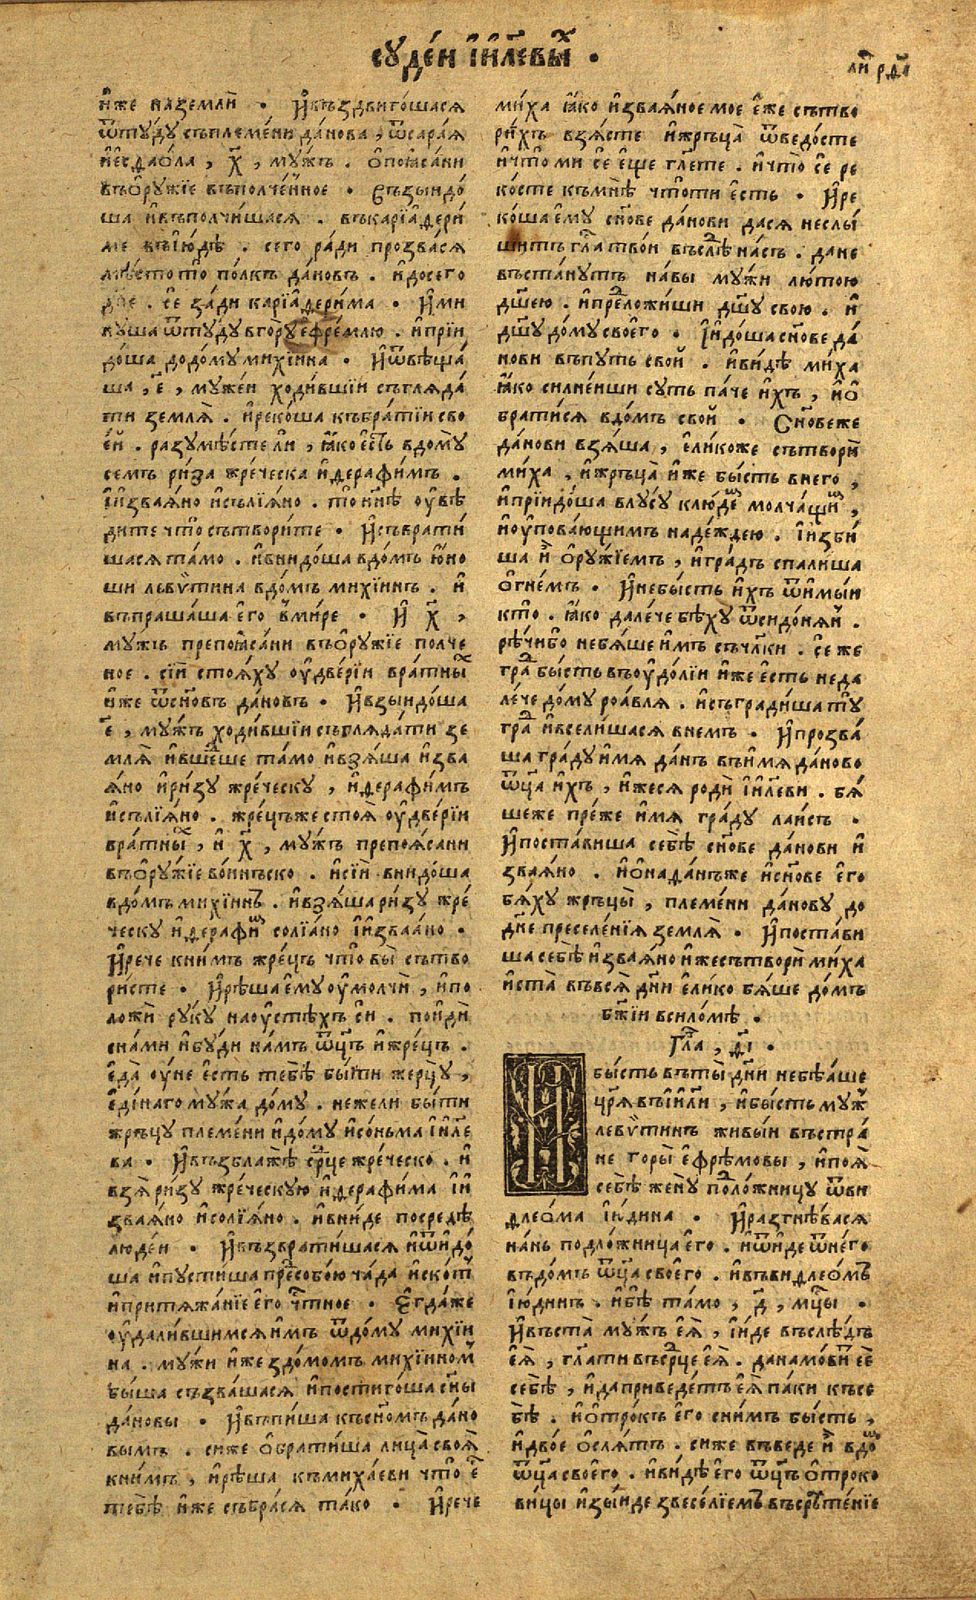 сꙋде́й і҆и҃левы́х .
ли́ рд҃і
и҆́же наземлѝ . И҆въздвиго́шася
ѿтꙋ́дꙋ съплеме́ни да́нова , ѿсара́я
и҆есдао́ла , х҃ , мꙋ́жъ . ѻ҆поꙗ́сани
въѻ҆рꙋ́жїе въполче́нное . Съвзыидо́
ша и҆въполчи́шася . въкарїа҆дери́
ме въїю́дѣ . сего̀ ра́ди прозва́ся
мѣ́сто то̀ по́лкъ да́новъ . и҆досего̀
дн҃е . се̂ за́ди карїа҆дери́ма . И҆ми
нꙋ́ша ѿтꙋ́дꙋ вго́рꙋ е҆фре́млю . и҆прїи
до́ша додо́мꙋ михі́ина . И҆ѿвѣща́
ша , е҃ , мꙋже́й ходи́вшїи съгляда́
ти земля̀ . и҆реко́ша къбра́тїи сво
е́й . разꙋмѣ́сте ли , ꙗ҆́ко е҆́сть вдо́мꙋ
семъ ри́за жре́ческа и҆дерафи́мъ .
и҆и҆зва́яно и҆сълїя́но . то̀ нн҃ѣ оу҆вѣ́
дите что̀ сътвори́те . И҆съврати́
шася та́мо . и҆внидо́ша вдо́мъ ю҆́но
ши левѵ́тина вдо́мъ михі́инъ . и҆
въпраша́ша е҆го̀ ѡ҆ми́ре . И҆ х҃ ,
мꙋ́жъ препоꙗ́сани въѻ҆рꙋ́жїе полче́
ное . сїи́ стоя́хꙋ оу҆две́рїи вра́тных
и҆́же ѿсн҃овъ да́новъ . И҆взыидо́ша
е҃ , мꙋ́жъ ходи́вшїи съгляда́ти зе
мля̀ и҆вше́дше та́мо и҆взя́ша и҆зва́
я́но и҆ри́зꙋ жре́ческꙋ , и҆дерафи́мъ
и҆сълїя́но . жре́цъже стоя̀ оу҆две́рїи
вра́тных , и҆ х҃ , мꙋ́жъ препоя́сани
въѻ҆рꙋ́жїе во́инъско . и҆сїи́ внидо́ша
вдо́мъ михі́инъ . и҆взя́ша ри́зꙋ жре́
ческꙋ и҆дерафи́м солїа́но и҆и҆зваа́но .
И҆рече книмъ жре́цъ что̀ вы̀ сътво
ри́сте . И҆рѣ́ша е҆мꙋ̀ оу҆молчѝ , и҆по
ложѝ рꙋ́кꙋ наоу҆стѣ́хъ сѝ . пои҆дѝ
сна́ми и҆бꙋ́ди на́мъ ѿц҃ъ и҆жре́цъ .
е҆да̀ оу҆́не е҆́сть тебѣ̀ бы́ти жерцꙋ̀ ,
е҆ди́наго мꙋ́жа до́мꙋ . не́жели бы́ти
жръцꙋ̀ пле́мени и҆до́мꙋ и҆со́ньма і҆и҃ле
ва . И҆възблажѣ̀ ср҃це жре́ческо . и҆
взя̀ ри́зꙋ жре́ческꙋю и҆дерафи́ма и҆и҆
зва́яно и҆солїя́но . и҆вни́де посредѣ̀
люде́й . И҆възврати́шася и҆ѿидо́
ша и҆пꙋсти́ша пре́дсобою ча́да и҆ско́т
и҆притяжа́нїе е҆го̀ чⷭ҇тное . Е҆гда́же
оу҆дали́вшимся и҆́мъ ѿдо́мꙋ михі́и
на . мꙋ́жи и҆́же здо́момъ михі́ином
бы́ша съзва́шася и҆пости́гоша сн҃ы
да́новы . И҆въпи́ша късн҃омъ да́но
вымъ . си́же ѻ҆брати́ша лица̀ своя̀
кни́мъ , и҆рѣ́ша къмиха́еви что̀ е҆с
тебѣ̀ и҆́же събра́ся та́ко . И҆рече
ми́ха ꙗ҆́ко и҆зва́яное мое е҆́же сътво
ри́хъ взя́сте и҆жръца̀ ѿведо́сте
и҆что̀ ми се̂ е҆ще гл҃ете . и҆что̀ се̂ ре
ко́сте къмнѣ̀ что̀ти е҆́сть . И҆ре
ко́ша е҆мꙋ̀ сн҃ове да́нови дася неслы́
шитъ гл҃а тво́и въслѣ́д на́съ . да́не
въста́нꙋтъ на́вы мꙋ́жи лю́тою
дш҃ею . и҆предложи́ши дш҃ꙋ свою . и҆
дш҃ꙋ до́мꙋ своего̀ . И҆и҆до́ша сн҃ове да́
нови въпꙋ́ть сво́й . и҆ви́дѣ ми́ха
ꙗ҆́ко силне́иши сꙋ́ть па́че и҆́хъ , и҆ѻ҆
брати́ся вдо́мъ сво́й . Сн҃овеже
да́нови взя́ша , е҆ли́коже сътворѝ
ми́ха , и҆жръца̀ и҆́же бы́сть внего̀ ,
и҆прїидо́ша влꙋ́сꙋ клю́дем молча́щим ,
и҆оу҆пова́ющимъ наде́ждею . и҆и҆зби́
ша и҆́х ѻ҆рꙋ́жїемъ , и҆гра́дъ спали́ша
ѻ҆гне́мъ . И҆небы́сть и҆́хъ ѿимы́и
кто̀ . ꙗ҆́ко дале́че бѣ́хꙋ ѿсидо́нян .
рѣ́чибо небя́ше и҆́мъ съчл҃ки . се же
гра́д бы́сть въоу҆до́лїи и҆́же е҆́сть неда
ле́че до́мꙋ роа́вля . и҆съгради́ша тꙋ̀
гра́д и҆всели́шася внемъ . И҆прозва́
ша гра́дꙋ и҆́мя да́нъ въи҆́мя да́ново
ѿц҃а и҆́хъ , и҆́жеся родѝ і҆и҃леви . бя́
шеже пре́же и҆́мя гра́дꙋ лаи́съ .
И҆поста́виша себѣ̀ сн҃ове да́нови и҆
зва́яно . и҆ѻ҆надáнъже и҆сн҃ове е҆го̀
бя́хꙋ жръцы̀ , племе́ни да́новꙋ до
дн҃е преселе́нїя земля̀ . И҆поста́ви
ша себѣ̀ и҆зва́яно и҆́жесътворѝ ми́ха
и҆ста̀ въвся̀ дн҃и е҆ли́ко бя́ше до́мъ
бж҃їи всило́мѣ .
Гла́в , ѳ҃і .
И҆бы́сть въты̀ дн҃и небѣа́ше
цр҃я въі҆и҃ли , и҆бы́сть мꙋ́ж
левѵ́тинъ живы́и въстра
не горы̀ е҆фрѣ́мовы , и҆поя̀
себѣ̀ женꙋ̀ подло́жницꙋ ѿви
длео́ма і҆ю́дина . И҆разгнѣ́вася
на́нь подло́жница е҆го̀ . и҆ѿи́де ѿне́го
въдо́мъ ѿц҃а своего̀ . и҆въви длео́мъ
і҆ю́динъ . и҆бѣ̀ та́мо , д҃ , мц҃ы .
И҆въста̀ мꙋ́жъ е҆я̀ , и҆и́де въслѣ́дъ
е҆я̀ , гл҃ати въср҃це е҆я̀ . данамо́вит е҆ѐ
себѣ̀ , и҆даприведе́тъ е҆я̀ па́ки късе
бѣ̀ . и҆ѻ҆́трокъ е҆го̀ сни́мъ бы́сть ,
и҆дво́е ѻ҆сля́тъ . си́же въведе и҆́х вдо́м
ѿц҃а своего̀ . и҆ви́дѣ е҆го̀ ѿц҃ъ ѻ҆троко
ви́цы и҆зы́иде звесе́лїемъ въсрѣ́тенїе